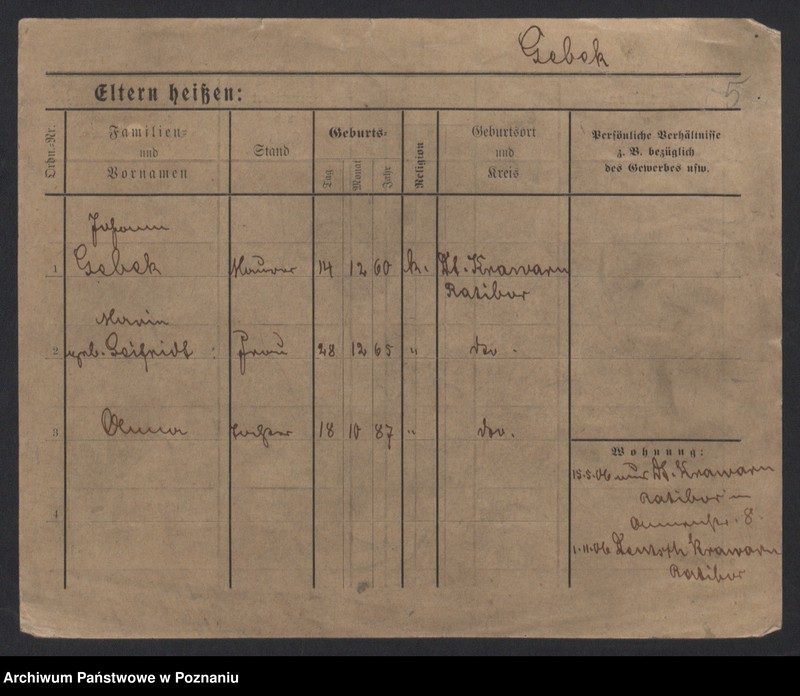 Gebek
5
Eltern heißen:
Ordn.-Nr.
Familien-
und
Vornamen
Stand
Geburts-
Tag
Monat
Jahr
Religion
Geburtsort
und
Kreis
Persönliche Verhältnisse
z. B. bezüglich
des Gewerbes usw.
Johann
1 Gebek Maurer 14 12 60 k. Dt. Krawarn
Ratibor
Maria
2 geb. Seifridt Frau 28 12 65 " dto.
3 Anna Tochter 18 10 87 " dto.
Wohnung:
15.5.06 aus Dt. Krawarn
Ratibor
8.
4
1.11.06 Deutsch Krawarn
Ratibor
Archiwum Państwowe w Poznaniu